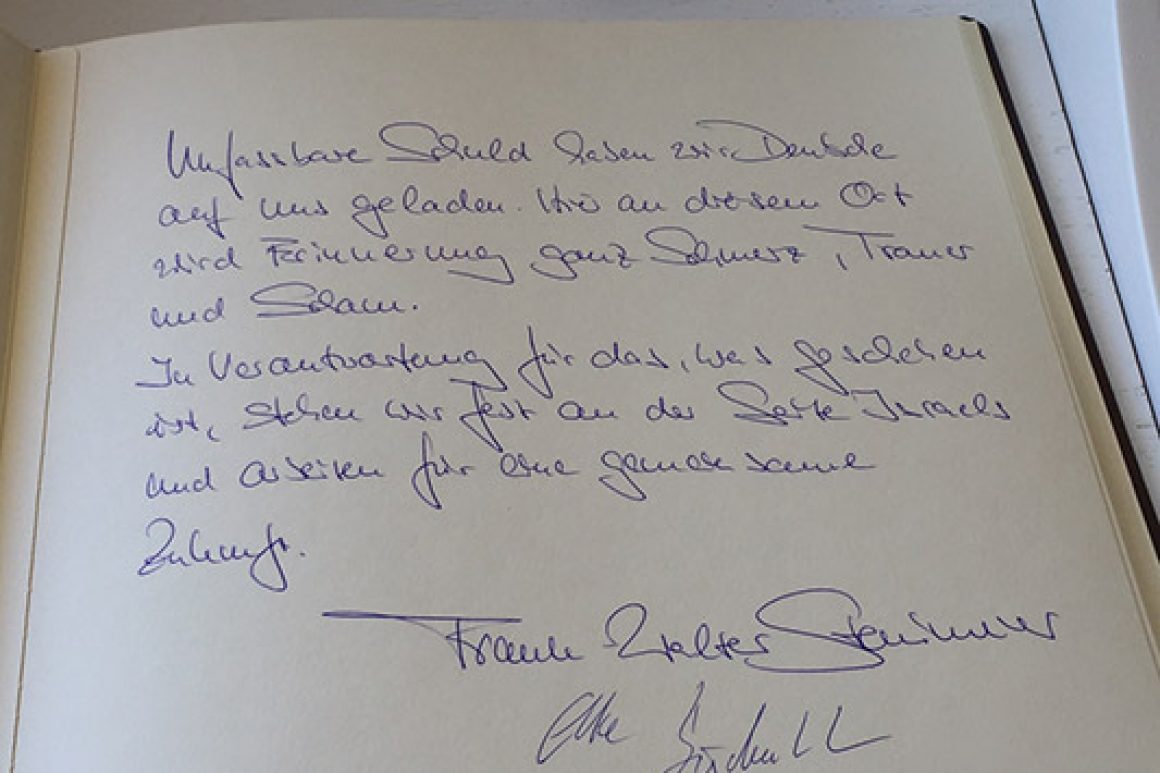 Unfassbare Schuld haben wir Deutsche
auf uns geladen. Hier an diesem Ort
wird Erinnerung ganz Schmerz, Trauer
und Scham.
In Verantwortung für das, was geschehen
ist, stehen wir fest an der Seite Israels
und arbeiten für eine gemeinsame
Zukunft.
Frank Walter Steinmeier
Elke Büdenbender